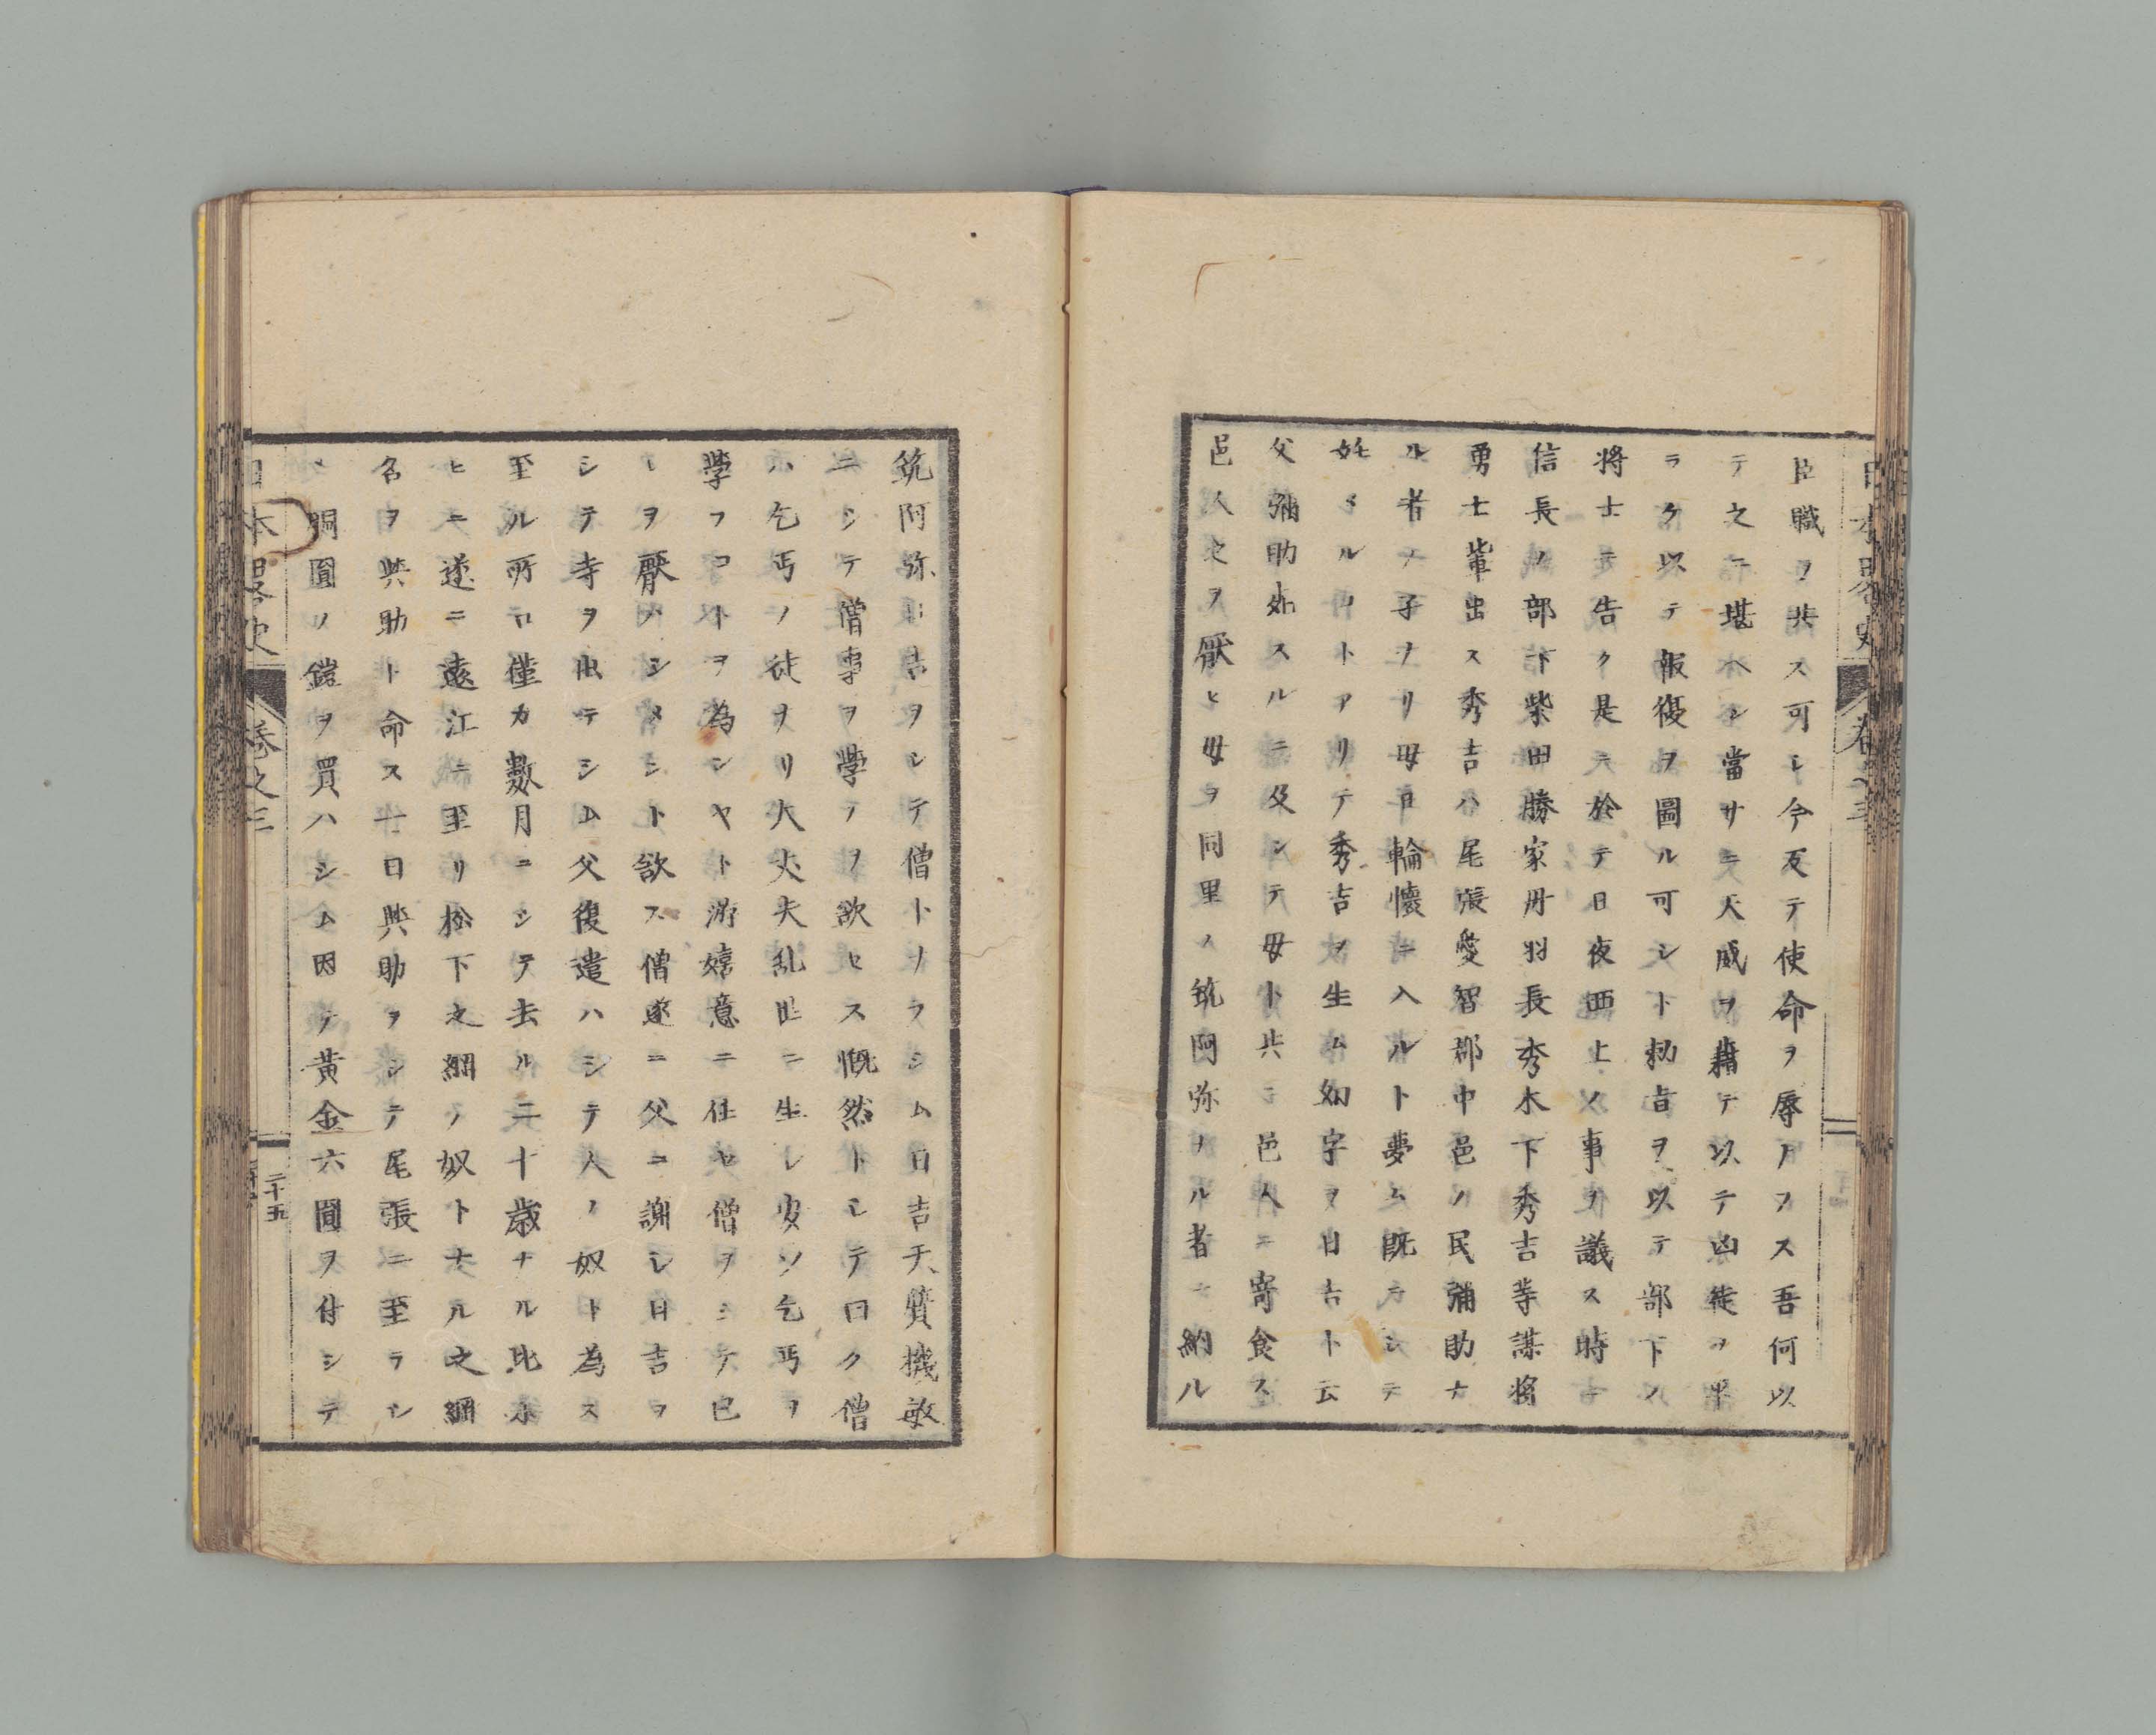 臣職ヲ共ス可シ今反テ使命ヲ辱カフス吾何以
テ之ニ堪ヘン當サニ天威ヲ藉テ以テ凶徒ヲ平
ラケ以テ報復ヲ圖ル可シト勅旨ヲ以テ部下ノ
将士ニ告ク是ニ於テ日夜西上ノ事ヲ議ス時ニ
信長ノ部下柴田勝家丹羽長秀木下秀吉等謀将
勇士輩出ス秀吉ハ尾張愛智郡中邑ノ民彌助ナ
ル者ノ子ナリ母日輪懐ニ入ルト夢ム既ニシテ
妊メルコトアリテ秀吉ヲ生ム幼字ヲ日吉ト云
父彌助死スルニ及ンテ母ト共ニ邑人ニ寄食ス
邑人之ヲ厭ヒ母ヲ同里ノ筑阿弥ナル者ニ納ル
筑阿弥日吉ヲシテ僧トナラシム日吉天質機敏
ニシテ僧事ヲ學フヲ欲セス慨然トシテ曰ク僧
ハ乞丐ノ徒ナリ大丈夫乱世ニ生レ安ソ乞丐ヲ
學フコトヲ為ンヤト游嬉意ニ任セ僧ヲシテ己
レヲ厭ハシメント欲ス僧遂ニ父ニ謝シ日吉ヲ
シテ寺ヲ出テシム父復遣ハシテ人ノ奴ト為ス
至ル所ロ僅カ數月ニシテ去ル二十歳ナル比ホ
ヒニ遂ニ遠江ニ至リ松下之綱ノ奴トナル之綱
名ヲ與助ト命ス一日與助ヲシテ尾張ニ至ラシ
メ胴圓ノ鎧ヲ買ハシム因テ黄金六圓ヲ付シテ
日本略史
巻之三
二十五